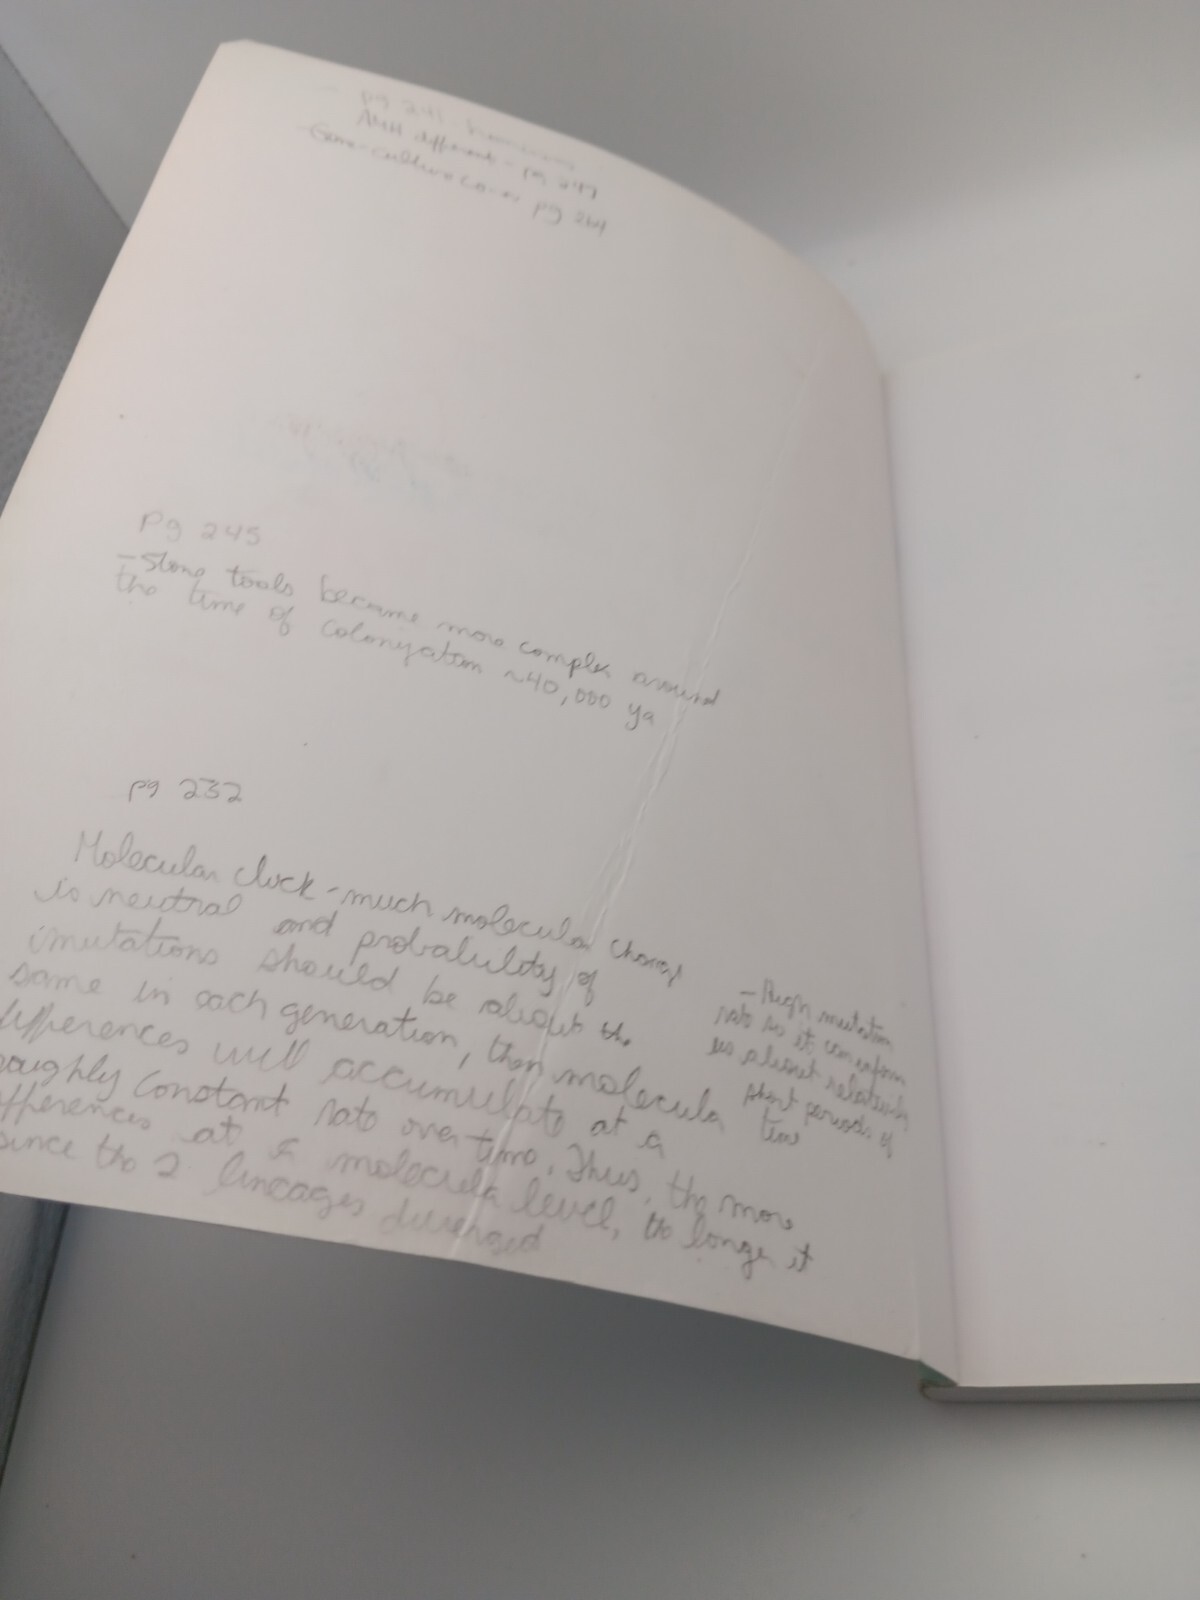 pg 241
AMH different - pg 247
Gene-culture co-ev pg 264
pg 245
- Stone tools became more complex around
the time of colonization ~40,000 ya
pg 232
Molecular clock - much molecular change
is neutral and probability of
mutations should be about the
same in each generation, then molecular
differences will accumulate at a
roughly constant rate over time. Thus, the more
differences at a molecular level, the longer it
since the 2 lineages diverged
- High mutation
rate so it can inform
us about relatively
short periods of
time